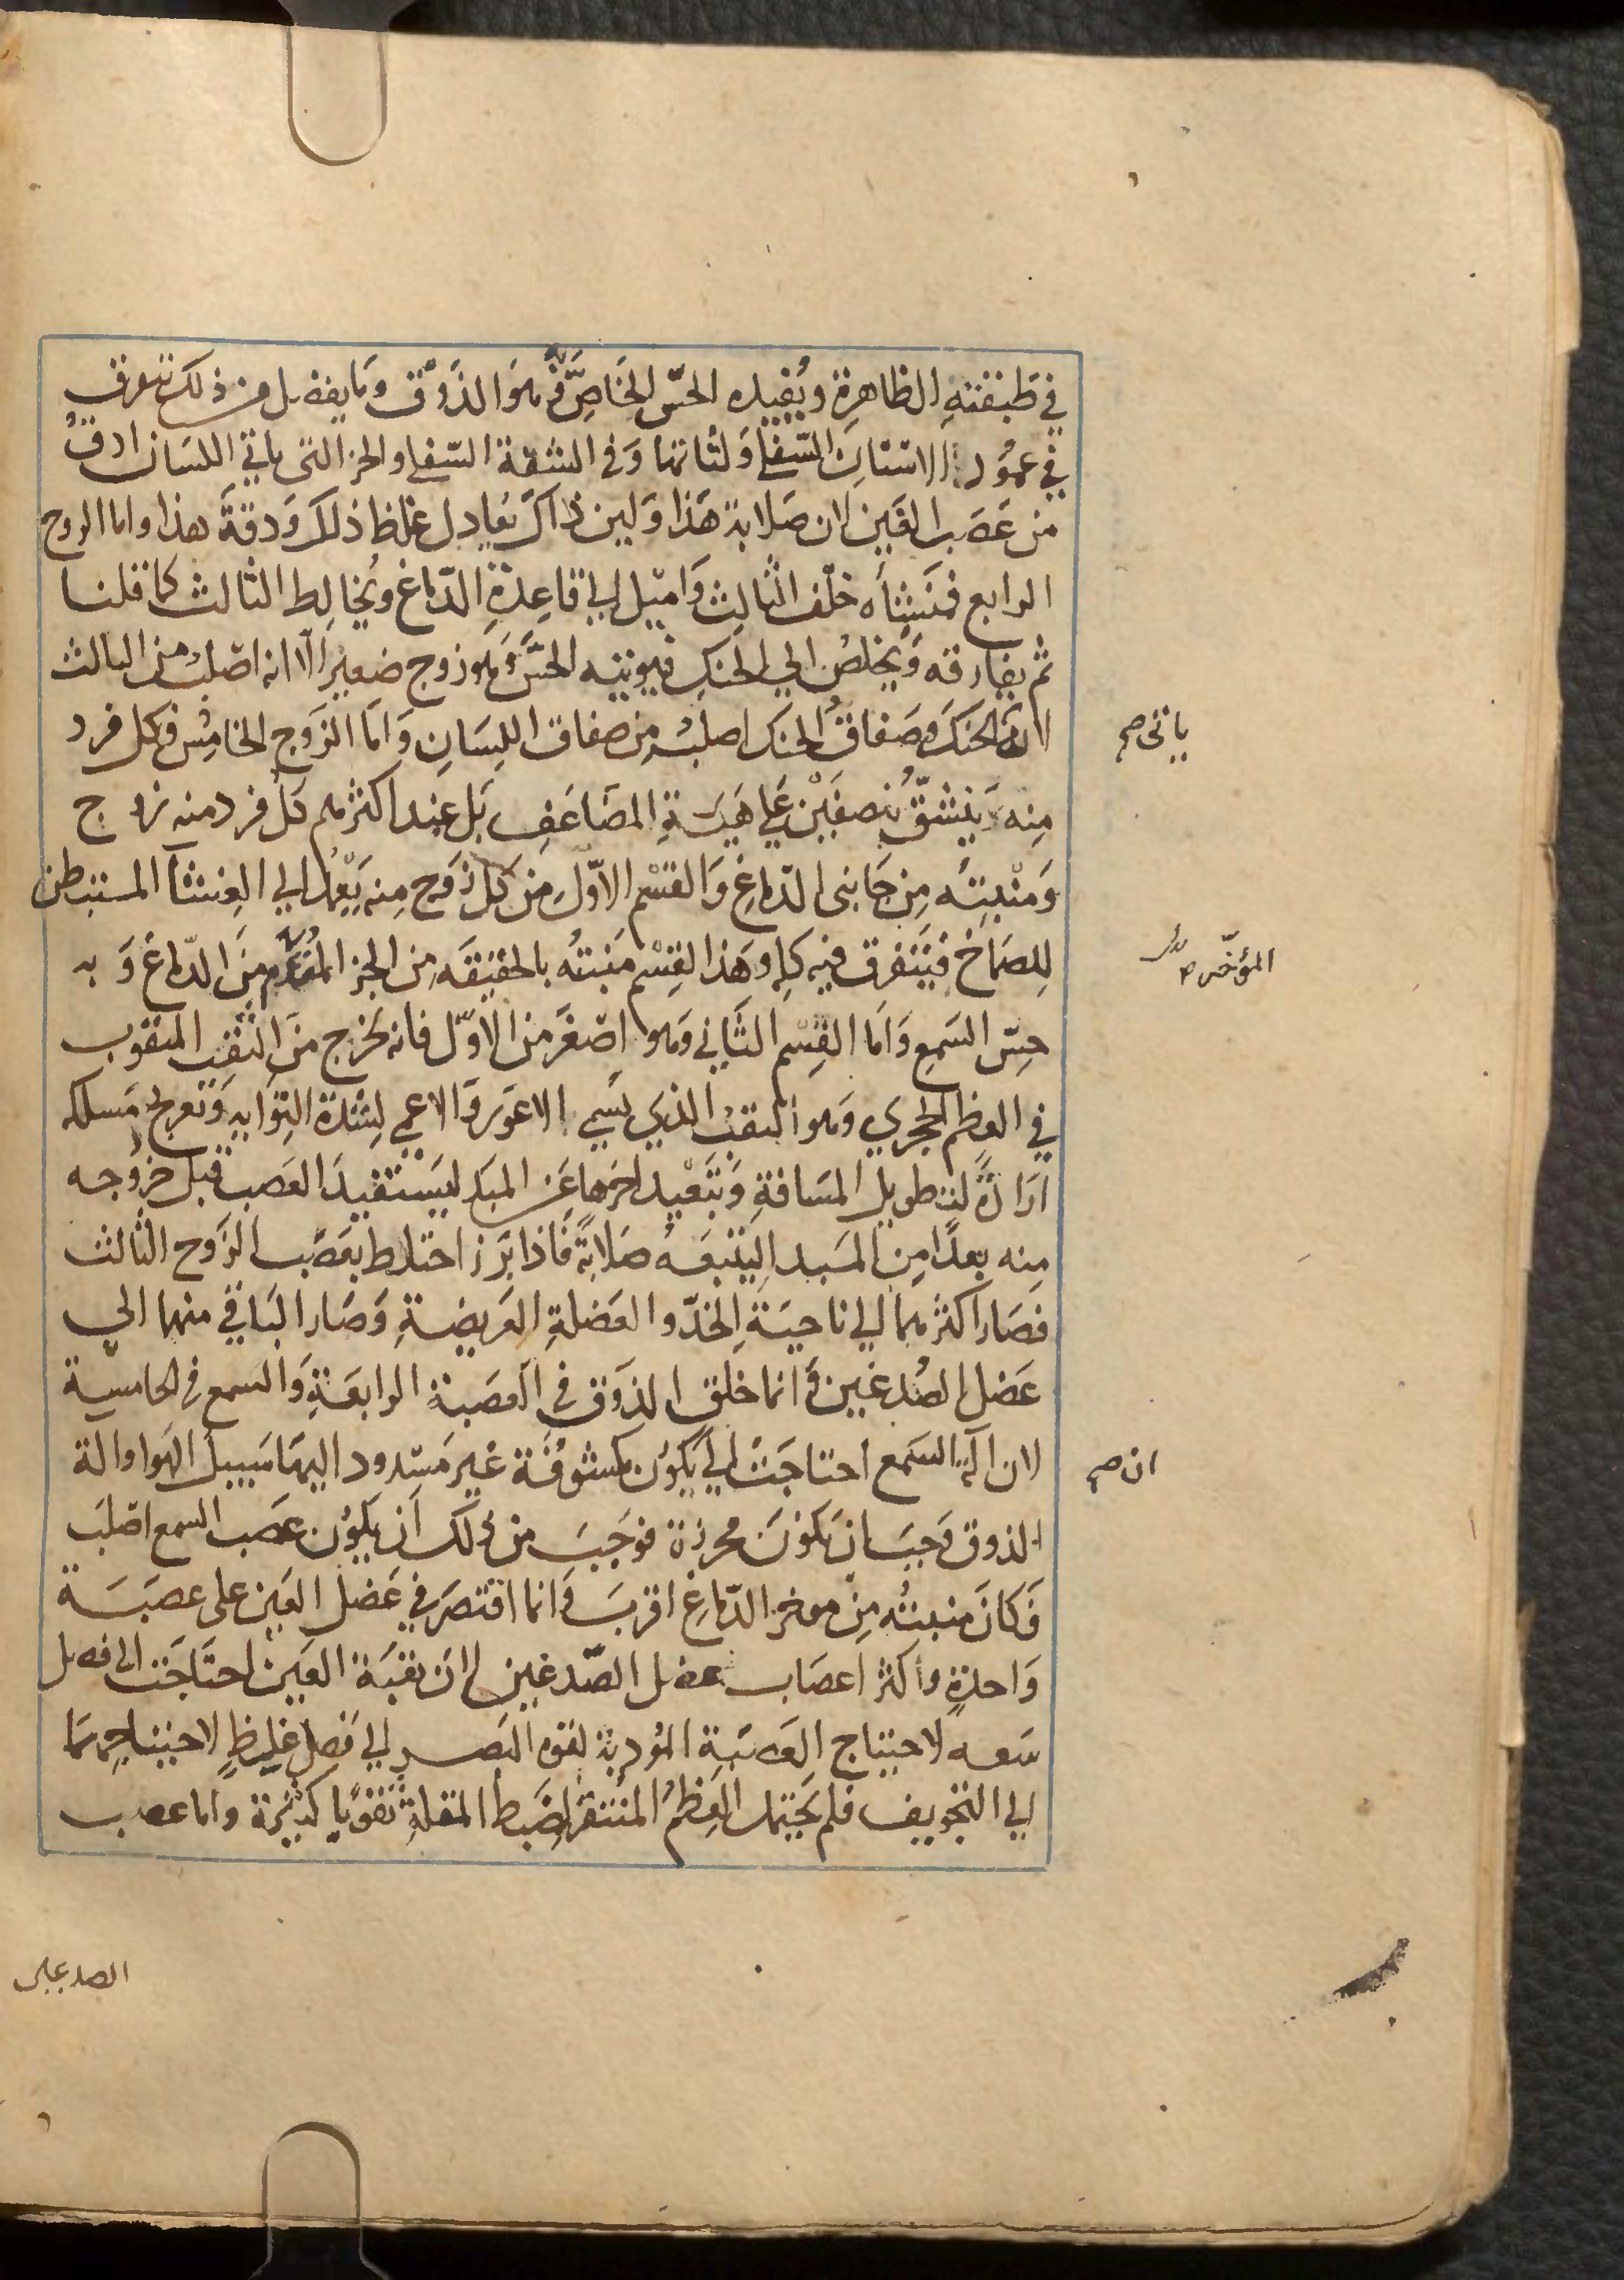 في طبقته الظاهرة ويفيده الحس الخاص وهو الذوق وما يفضل من ذلك يتفرق
في عمور الاسنان السفلى ولثاتها وفي الشفة السفلى والجز التي ياتي اللسان ادق
من عصب العين لان صلابة هذا ولين ذاك يعادل غلظ ذلك ودقة هذا واما الزوج
الرابع فمنشاه خلف الثالث واميل الي قاعدة الدماغ ويخالط الثالث كما قلنا
ثم يفارقه ويخلص الي الحنك فيوتيه الحس وهو زوج صغير الا انه اصلب من الثالث
لان الحنك وصفاق الحنك اصلب من صفاق اللسان واما الزوج الخامس فكل فرد
ياتي صح
منه ينشق بنصفين علي هيئة المضاعف بل عند اكثرهم كل فرد منه زوج
ومنبته من جانبي الدماغ والقسم الاول من كل زوج منه يعمد الي الغشا المستبطن
للصماخ فيتفرق فيه كله وهذا القسم منبته بالحقيقه من الجز المقدم من الدماغ وبه
المؤخر
حس السمع واما القسم الثاني وهو اصغر من الاول فانه يخرج من الثقب المثقوب
في العظم الحجري وهو الثقب الذي يسمي الاعور والاعمي لشدة التوايه وتعرج مسلكه
ارادة لتطويل المسافة وتبعيد اخرها عن المبدا ليستفيد العصب قبل خروجه
منه بعدا من المبدا ليتبعه صلابة فاذا برز اختلط بعصب الزوج الثالث
فصار اكثرهما الي ناحية الخد والعضلة العريضة وصار الباقي منهما الي
عضل الصدغين وانما خلق الذوق في العصبة الرابعة والسمع في الخامسة
لان الة السمع احتاجت الي يكون مكشوفة غير مسدود اليها سبيل الهوا والة
ان صح
الذوق وجب ان تكون محرزة فوجب من ذلك ان يكون عصب السمع اصلب
فكان منبته من موخر الدماغ اقرب وانما اقتصر في عضل العين على عصبة
واحدة واكثر اعصاب عضل الصدغين لان ثقبة العين احتاجت الى فضل
سعه لاحتياج العصبة المودية لقوه البصر الي فضل غلظ لاحتياجهما
الي التجويف فلم يحتمل العظم المستقر لضبط المقلة ثقوبا كثيرة واما عصب
الصدغين